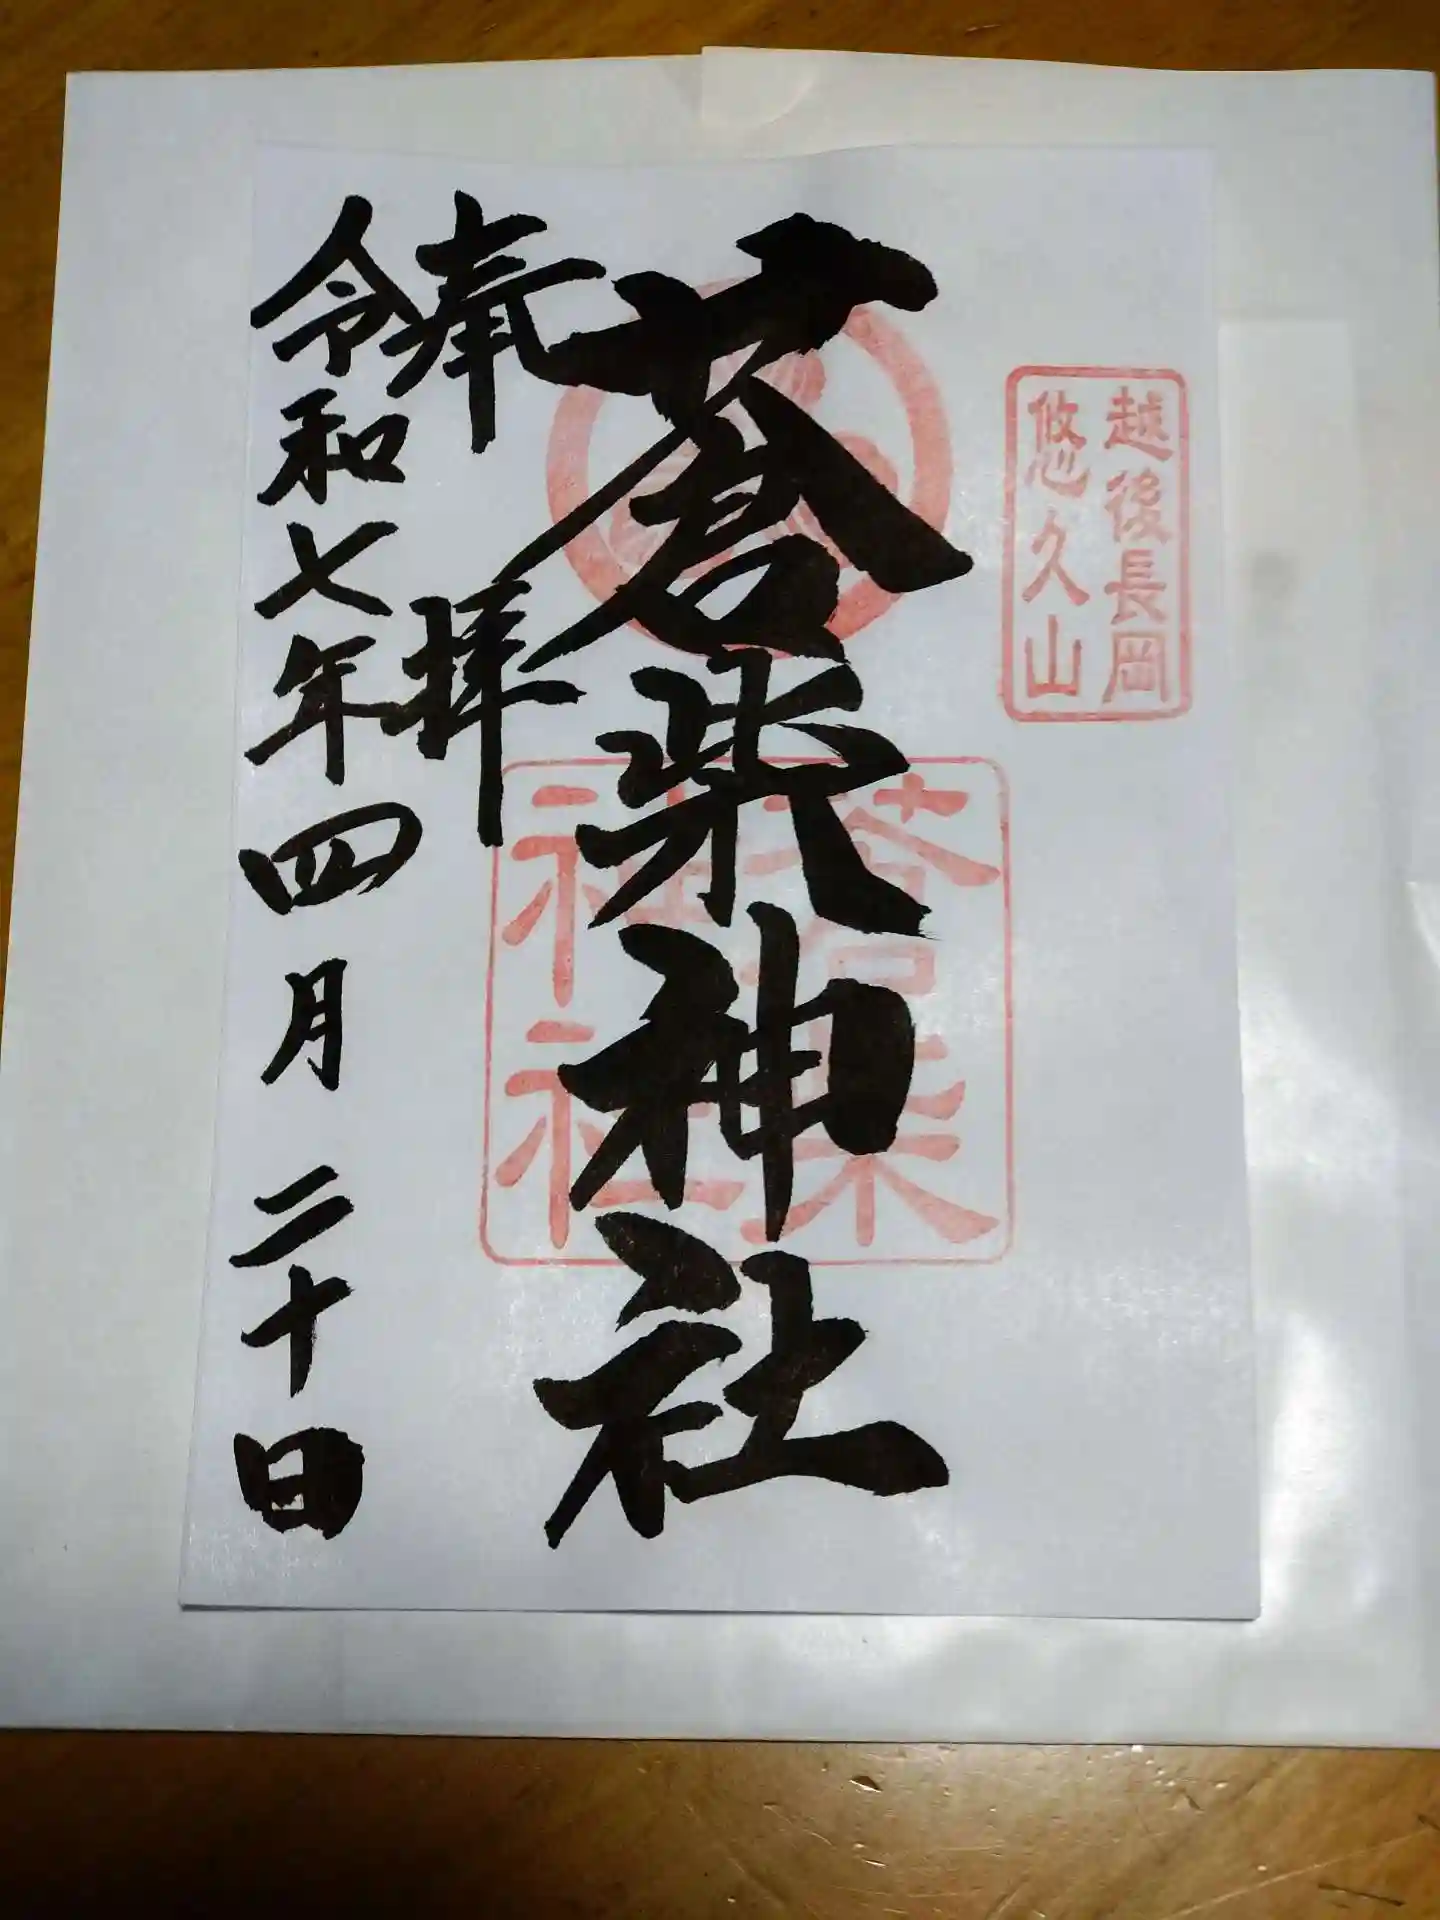 越後長岡
悠久山
蒼柴神社
蒼柴
神社
奉拝
令和七年四月二十日